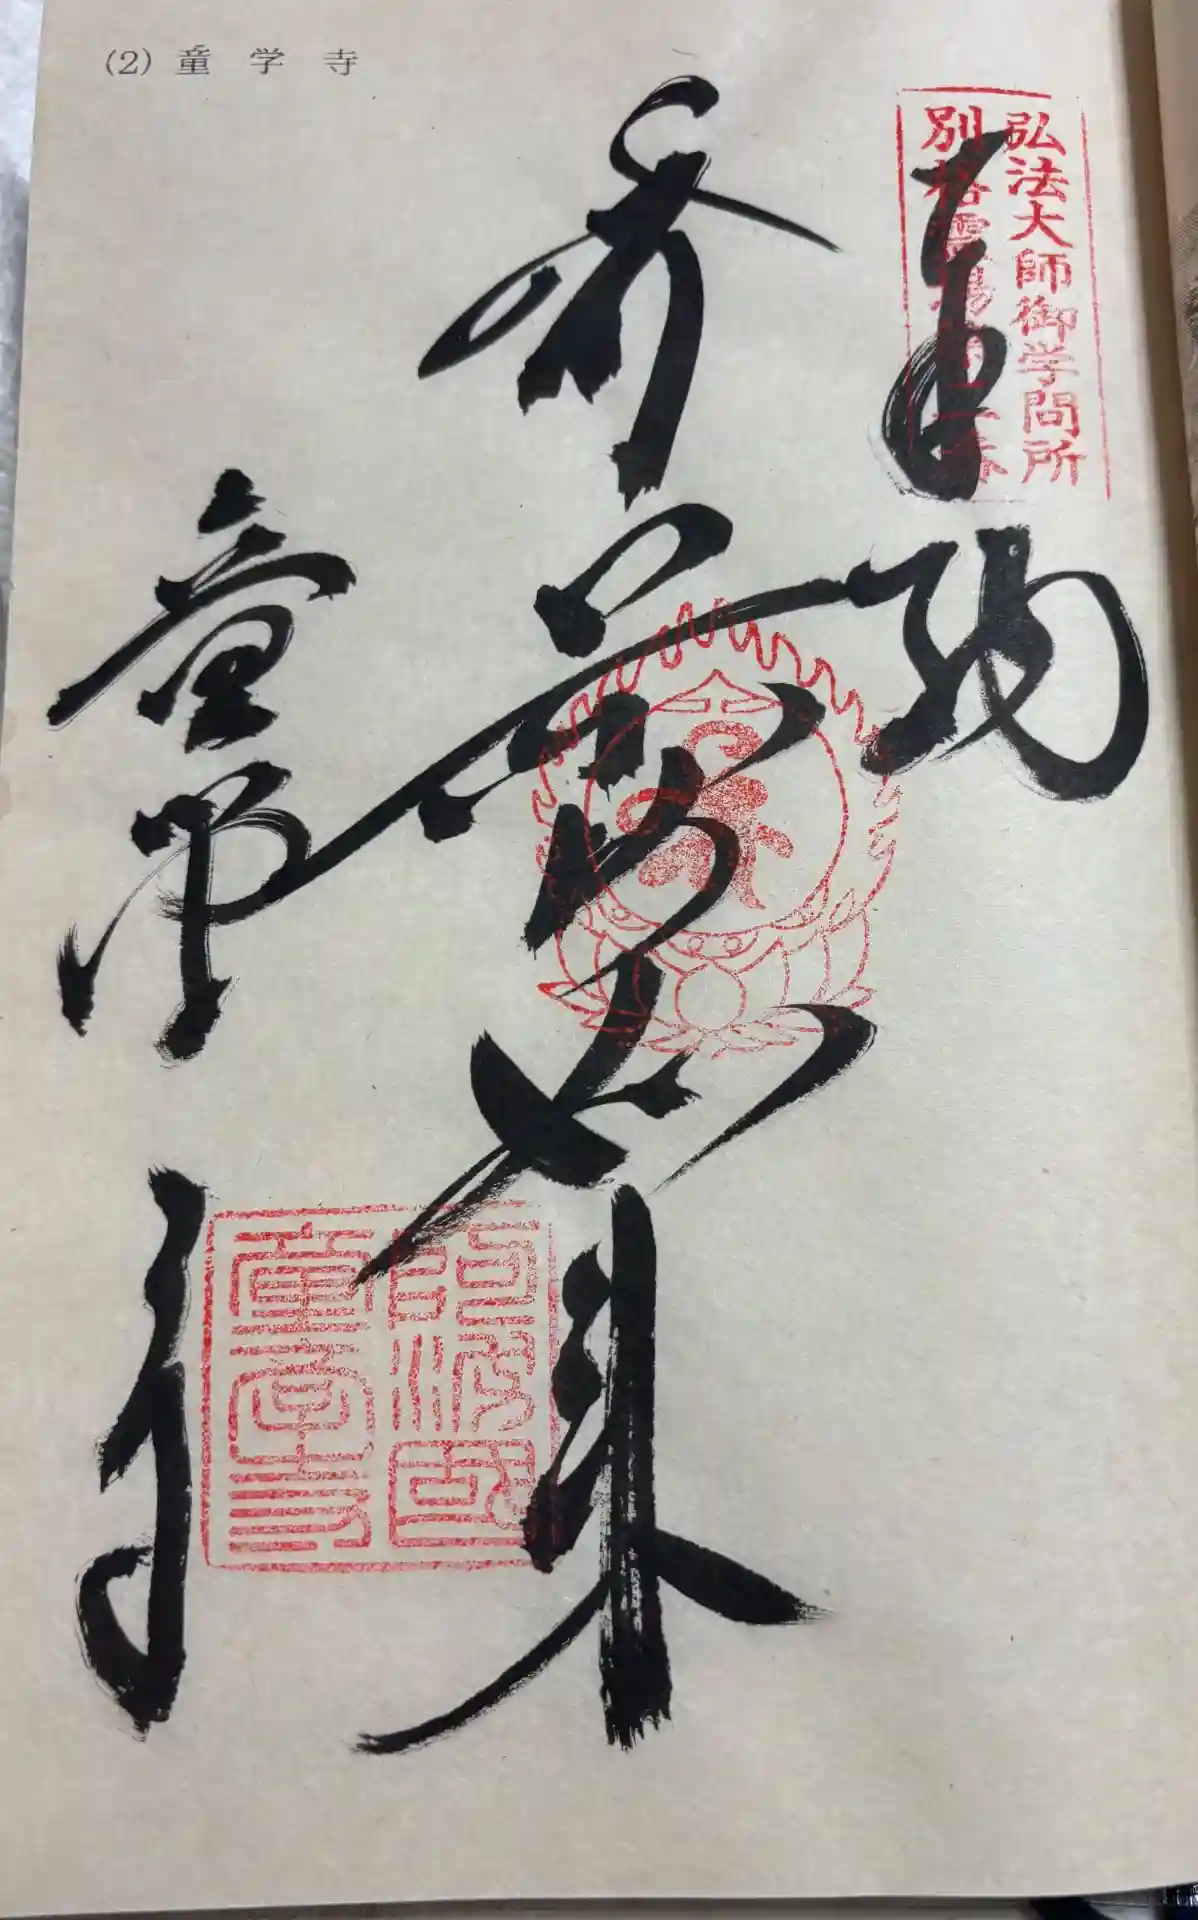 (2) 童学寺
弘法大師御学問所
別格霊場第二番
奉納
薬師如来
童学寺
阿波国
童学寺